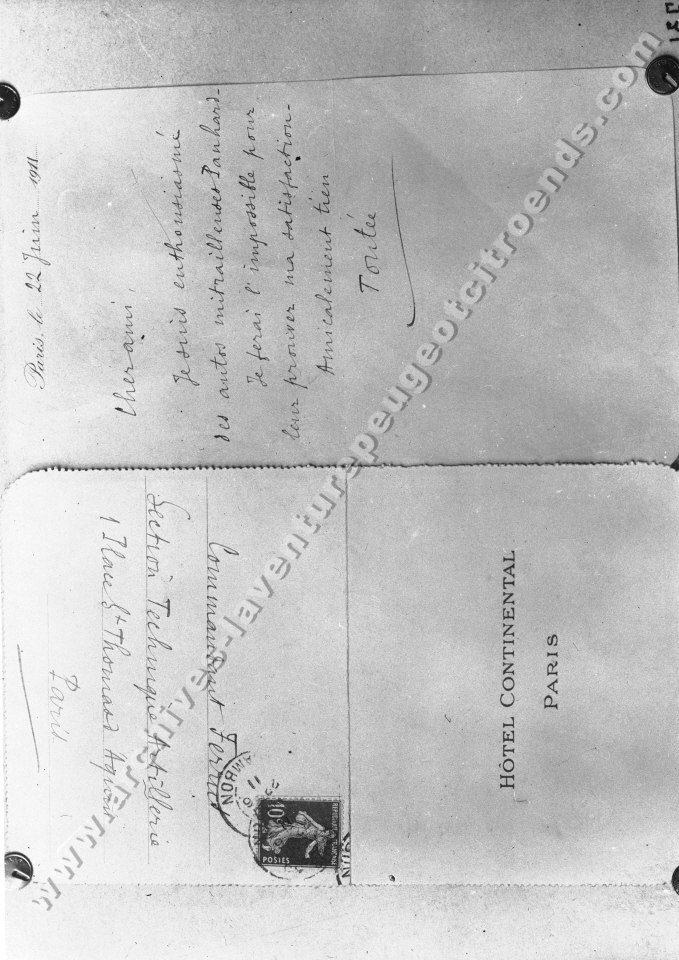 Paris, le 22 Juin 1911
Cher ami,
Je suis enthousiasmé
des autos mitrailleuses Panhard-
Je ferai l'impossible pour
leur prouver ma satisfaction-
Amicalement tien
Toutée
Commandant
Section Technique Artillerie
1 Place St Thomas Aquin
Paris
10
POSTES
HÔTEL CONTINENTAL
PARIS
www.archives-laventurepeugeotcitroends.com